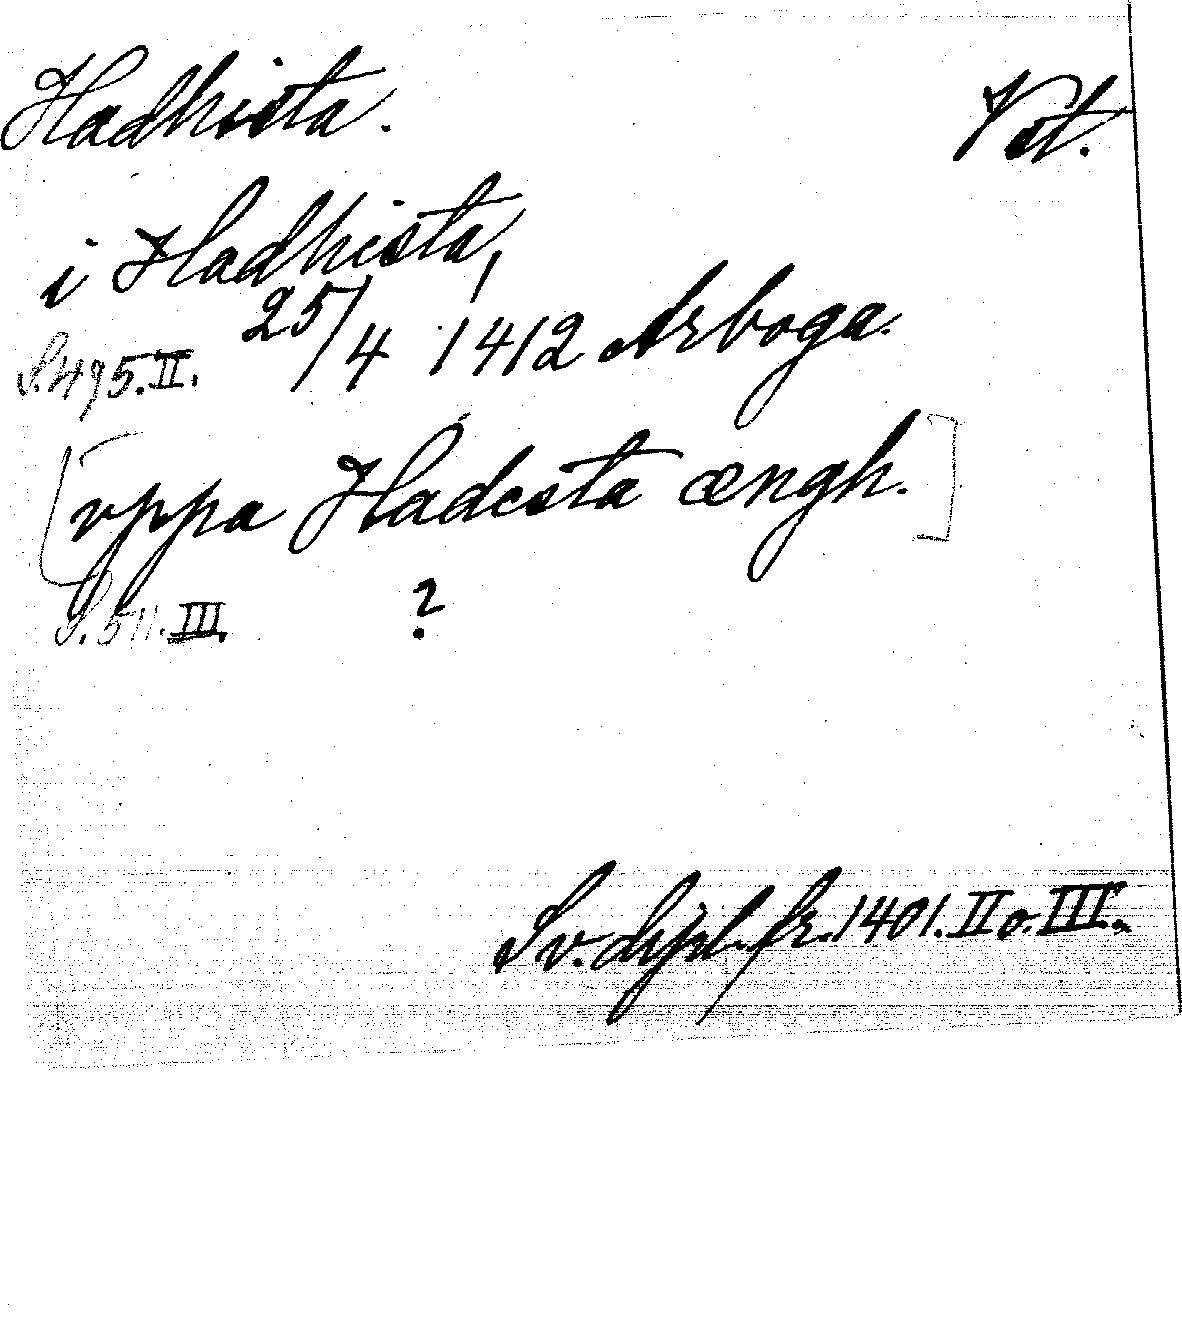 Hadhista.
Vst.
i Hadhista,
25/4 1412 Arboga.
S. 495. II.
[vppa Hadesta ængh.]
S. 511. III.
?
Sv. dipl. fr. 1401. II o. III.